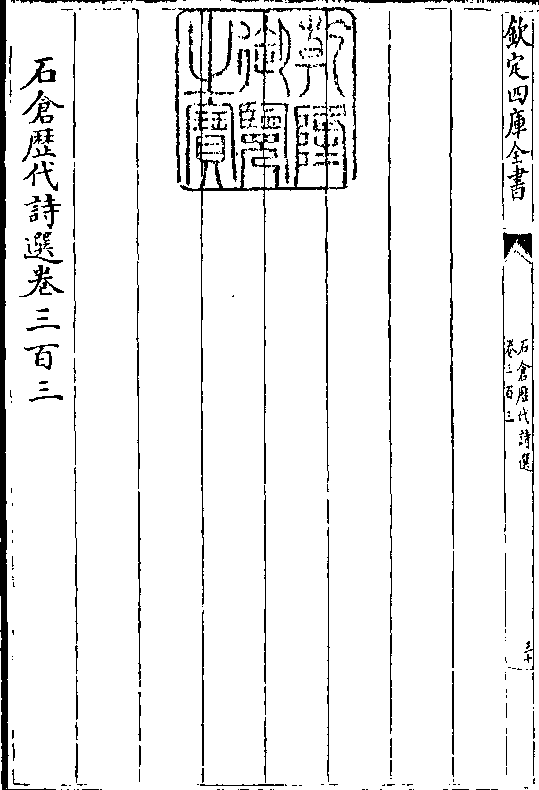 欽定四庫全書
石倉歴代詩選
卷三百三
三十
乾隆
御覽
之寶
石倉歴代詩選卷三百三